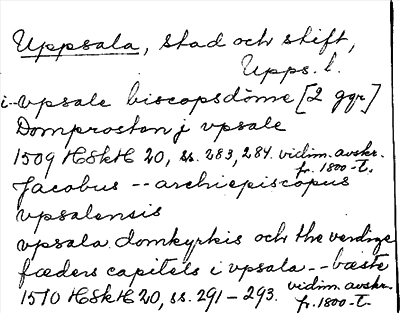 Uppsala, stad och stift,
Upps. l.
i vpsale biscopsdöme [2 ggr]
Domproston j vpsale
1509 HSkH 20, ss. 283, 284. vidim. avskr. fr. 1800-t.
Jacobus -- archiepiscopus
vpsalensis
vpsala domkyrkis och the verdige
fæders capitels i vpsala -- bæste
1510 HSkH 20, ss. 291-293. vidim. avskr. fr. 1800-t.